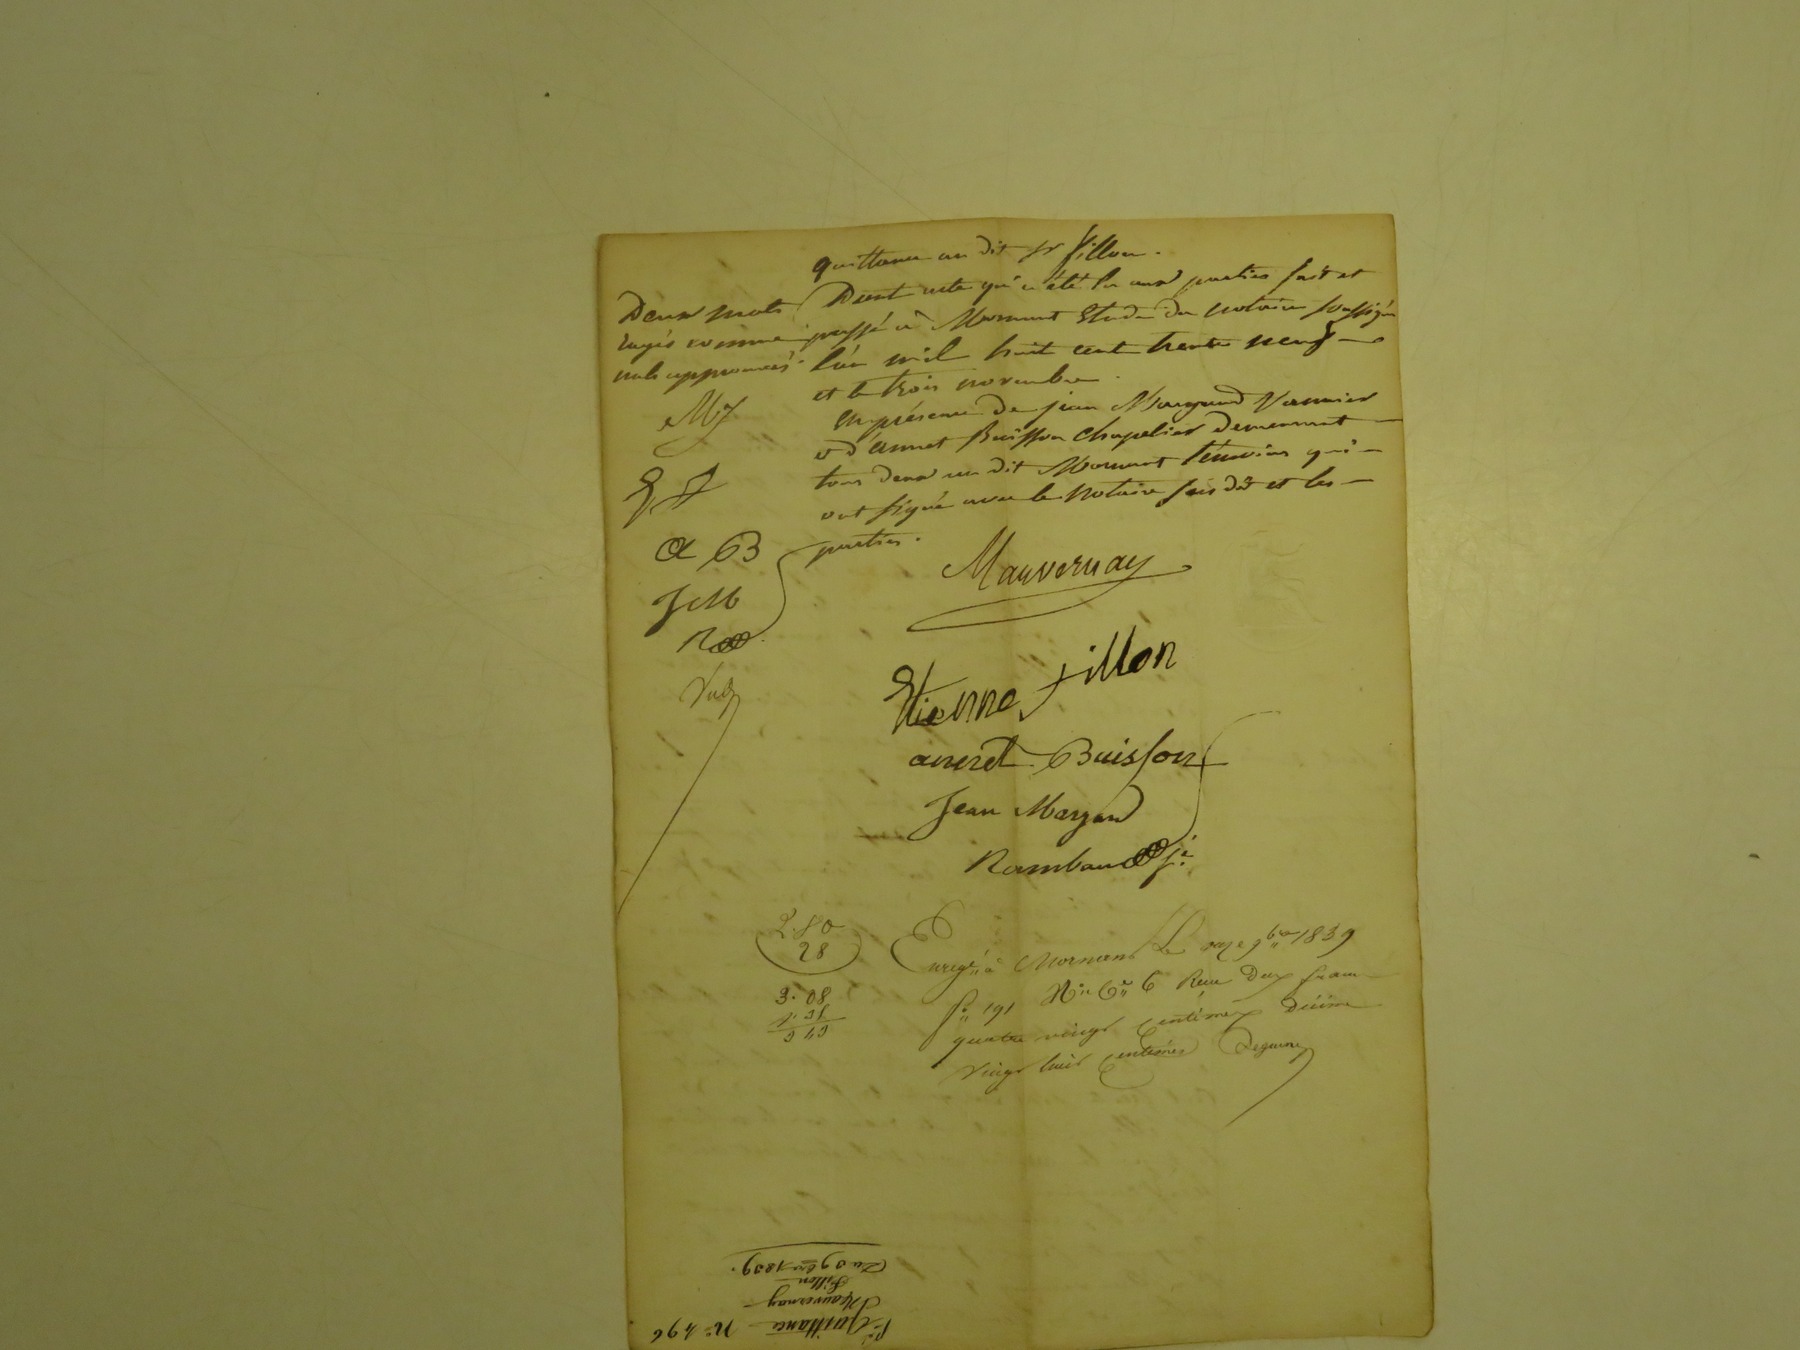 quittance au dit sr fillon.
Dont acte qui a été lu aux parties fait et
passé à Mornant Etude du notaire soussigné
l'an mil huit cent trente neuf
et le trois novembre.
En présence de jean Vannier
et d'annet Buisson Chapelier demeurant
tous deux au dit Mornant témoins qui
ont signé avec le notaire susdit et les
parties.
Deux mots
rayés comme
nuls approuvés.
E f
a B
J M
R
Mauvernay
Etienne fillon
annet Buisson
Jean
Rambaud
2.80
28
3.08
Enregé à Mornant Le onze 9bre 1839
fo 191 Ro Ce 6 Reçu Deux francs
quatre vingt centimes décime
vingt huit centimes
Quittance No 496
Mauvernay
Fillon
Du 3 9bre 1839.